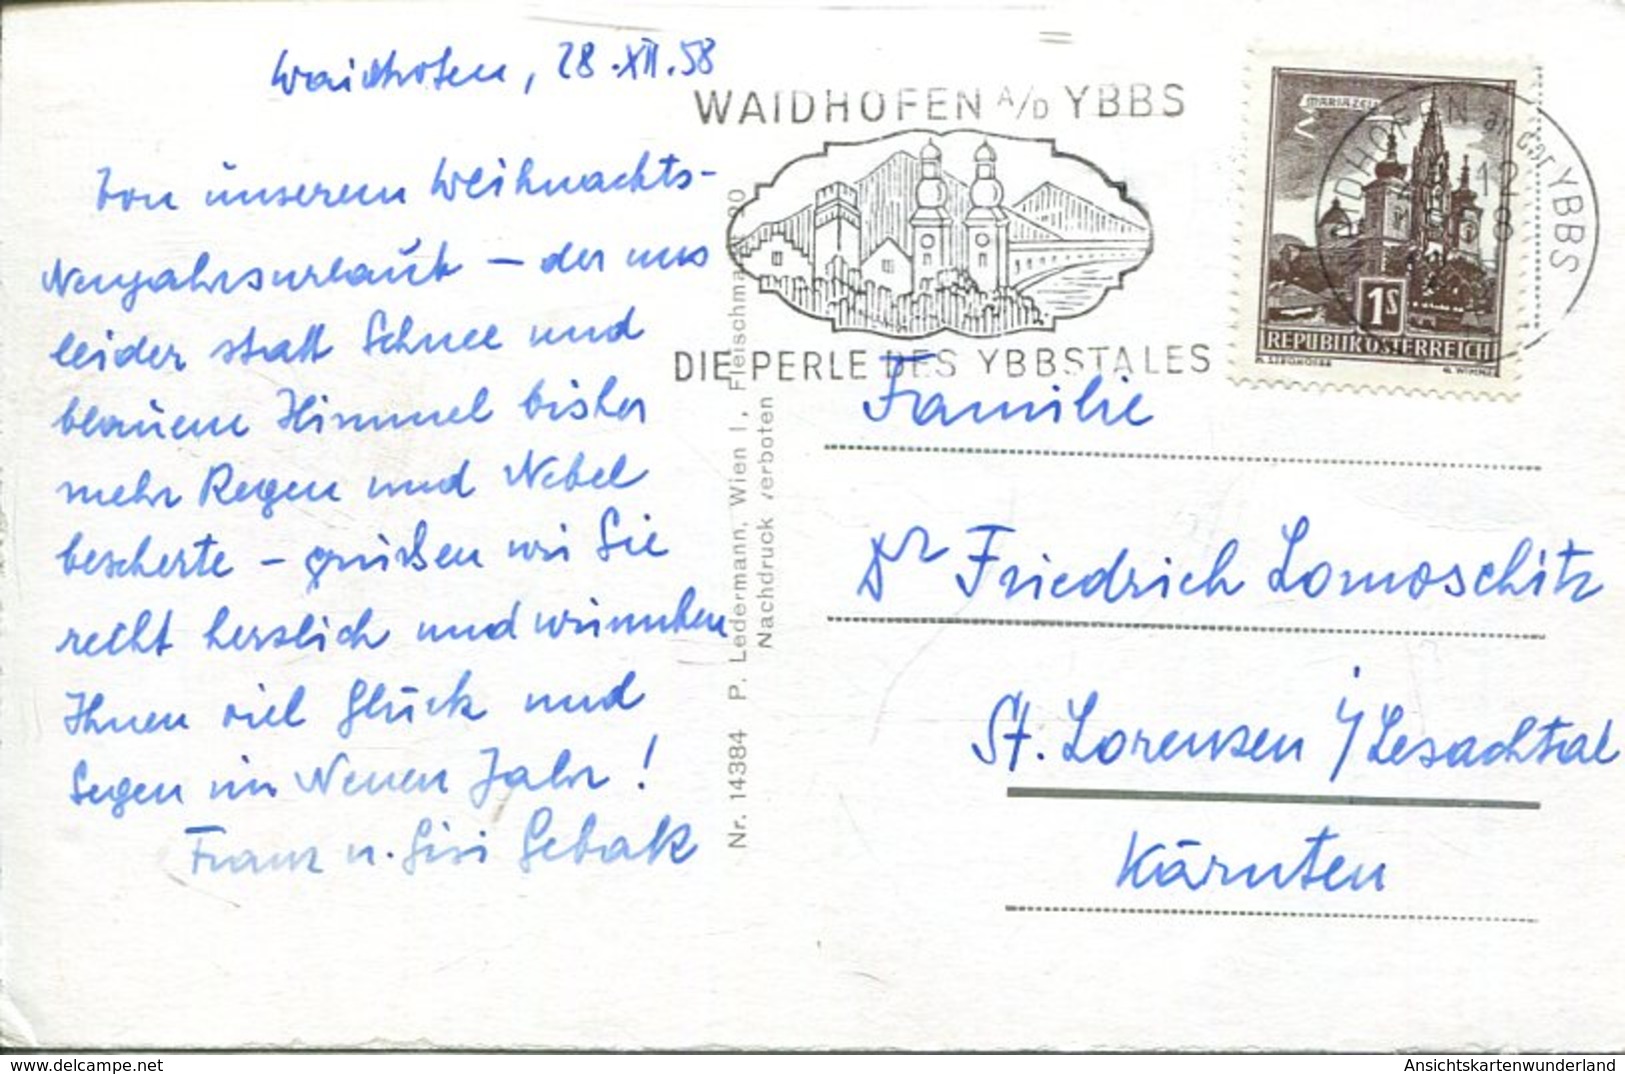 Waidhofen, 28.XII.58
Von unserem Weihnachts-
Neujahrsurlaub – der uns
leider statt Schnee und
blauem Himmel bisher
mehr Regen und Nebel
bescherte – grüßen wir Sie
recht herzlich und wünschen
Ihnen viel Glück und
Segen im Neuen Jahr!
Franz u. Sisi Sebak
Nr. 14384 P. Ledermann, Wien I., Fleischma 20
Nachdruck verboten
WAIDHOFEN A/D YBBS
DIE PERLE DES YBBSTALES
MARIAZELL
1S
REPUBLIK ÖSTERREICH
WAIDHOFEN an der YBBS
12
58
Familie
Dr Friedrich Lomoschitz
St. Lorenzen i/Lesachtal
Kärnten
AnsichtskartenWunderland